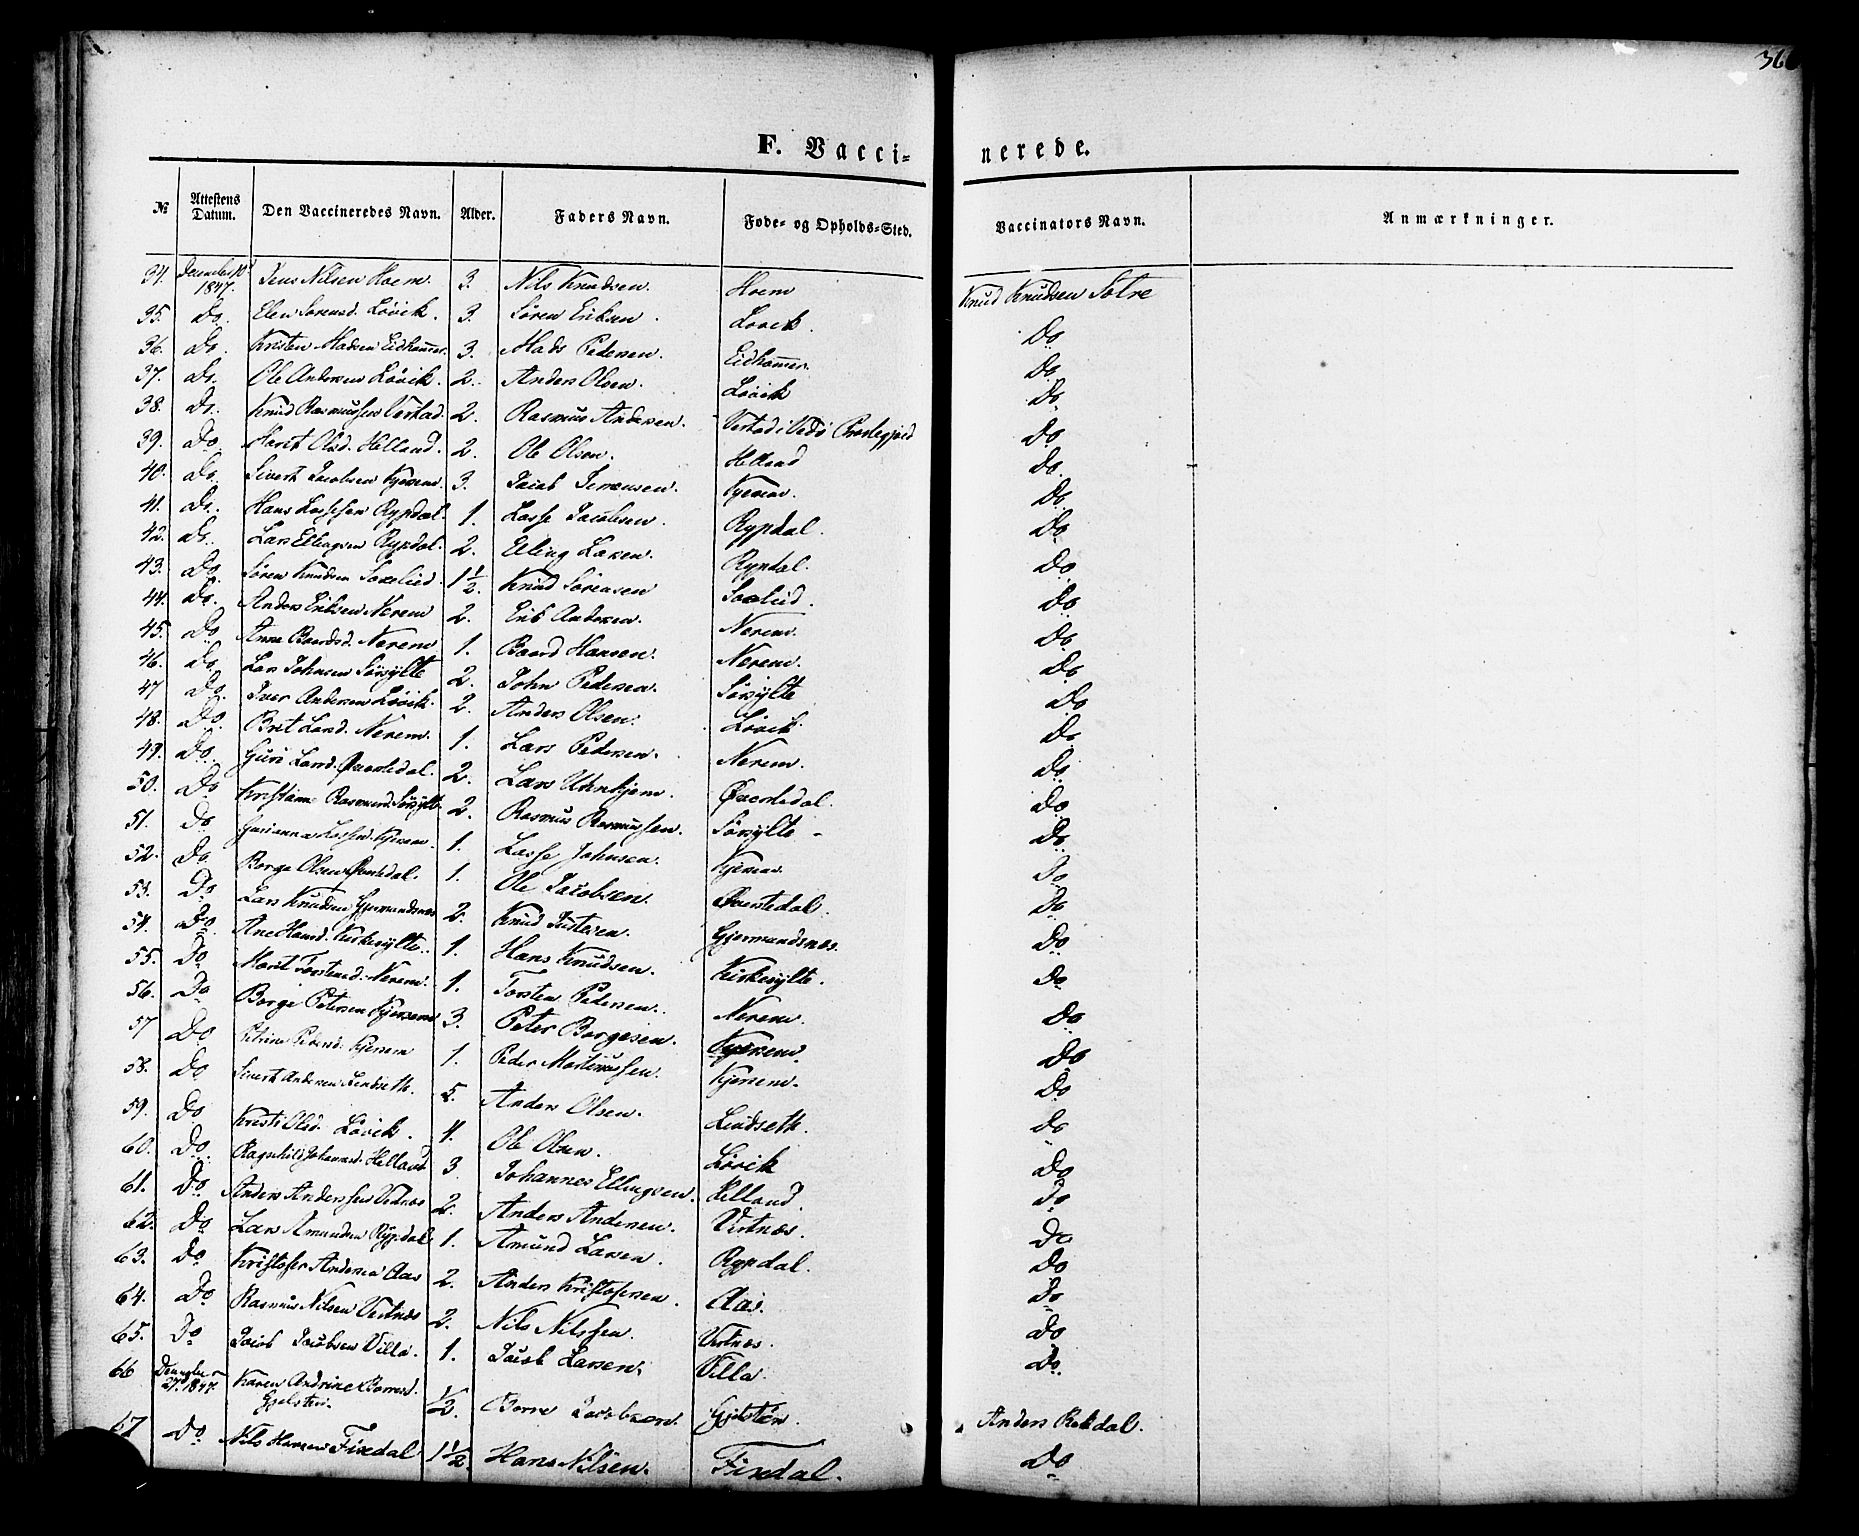 36
F. Vacci- nerede.
№ Attestens Datum. Den Vaccineredes Navn. Alder. Faders Navn. Føde- og Opholds-Sted. Vaccinators Navn. Anmærkninger.
34. December 10 1847. Jens Nilsen Hoem. 3. Nils Knudsen. Hoem Knud Knudsen Solre
35. Do. Elen Sørensd. Løvik. 3. Søren Eriksen. Lovik. Do
36. Do. Kristen Madsen Eidhammer. 3. Mads Pedersen. Eidhammer. Do
37. Do. Ole Andersen Løvik. 2. Anders Olsen. Løvik Do
38. Do. Knud Rasmussen Vestad. 2. Rasmus Andersen. Vestad i Vedø Do
39. Do Marit Olsd. Helland. 2. Ole Olsen. Helland Do
40. Do. Sivert Jacobsen Kjersem. 3. Jacob Simensen. Kjersem. Do
41. Do. Hans Lassesen Rypdal. 1. Lasse Jacobsen. Rypdal. Do
42. Do. Lars Ellingsen Rypdal. 2. Elling Larsen. Rypdal. Do
43. Do. Søren Knudsen Saxelied. 1½. Knud Sørensen Do
44. Do. Anders Eriksen Nerem 2. Erik Andersen. Nerem. Do
45. Do Anne Baardsd. Nerem 1. Baard Hansen. Nerem. Do
46. Do Lars Johnsen Sørsylte 2. John Pedersen. Sørsylte Do
47 Do. Iver Andersen Løvik. 2. Anders Olsen. Løvik. Do
48. Do. Brit Larsd. Nerem. 1. Lars Pedersen. Nerem. Do
49. Do. Guri Larsd. Øverstedal. 2. Lars Utnkjem. Øverstedal. Do
50. Do Rasmusd. Sørsylte 2. Rasmus Rasmussen. Sørsylte - Do
51. Do Gurianna Lassesd. Kjersem. 1. Lasse Johnsen. Kjersem. Do
52. Do Børge Olsen Øverstedal. 1. Ole Jacobsen. Øverstedal. Do
53. Do Lars Knudsen Gjermundsnæs 2. Knud Gjermundsnæs. Do
54. Do. Ane Hansd. Kirkesylte. 1. Hans Knudsen. Kirkesylte. Do
55. Do Marit Torstensd. Nerem. 1. Torsten Pedersen. Nerem. Do
56. Do Børge Petersen Kjersem 3. Peter Børgesen. Kjersem. Do
57 Do Petrine Pedersd. Kjersem 1. Peder Kjersem. Do
58. Do Sivert Andersen Lindseth. 5. Anders Olsen. Lindseth. Do
59. Do Kristi Olsd. Løvik. 4. Ole Olsen. Løvik Do
60. Do. Ragnhild Johannesd. Helland 3 Johannes Ellingsen. Helland. Do
61. Do Anders Anderssen Vestnæs 2. Anders Andersen. Vestnæs. Do
62. Do Lars Amundsen Rypdal 1. Amund Larsen. Rypdal. Do
63. Do Kristofer Andersen Aas 2. Anders Kristofersen. Aas. Do
64. Do Rasmus Nilsen Vestnæs 2. Nils Nilssen. Vestnæs. Do
65. Do Jacob Jacobsen Villa. 1. Jacob Larsen. Villa. Do
66 December 27. 1847. Karen Andrine Børresd. Gjelsten. ½. Børre Jacobsen. Gjelsten. Anders Rekdal.
67 Do Nils Hansen Fixedal 1½. Hans Nilsen. Fixedal. Do